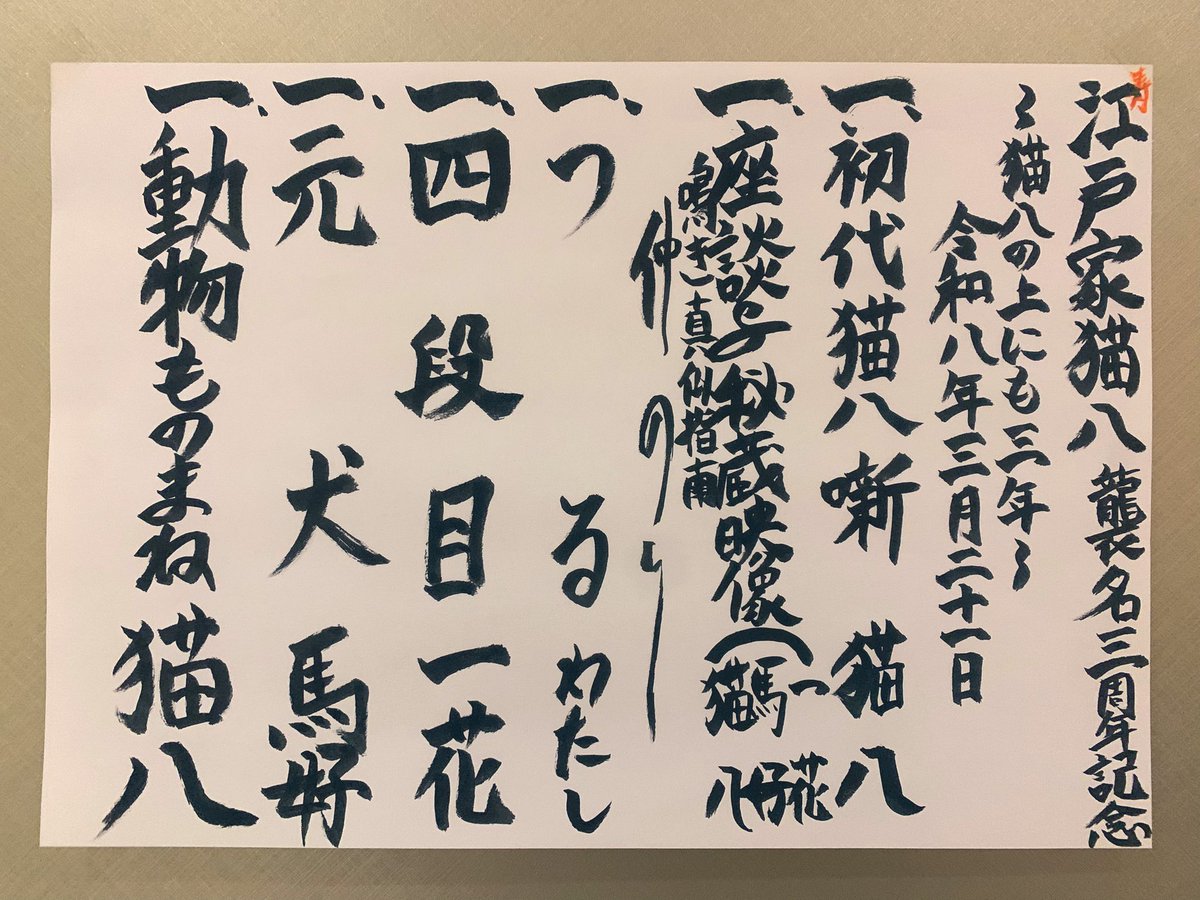 寿
江戸家猫八 襲名三周年記念
〻猫八の上にも三年〻
令和八年三月二十一日
一、初代猫八噺 猫八
一、座談と秘蔵映像(一花
馬好
猫八
鳴き真似指南
仲のり
一、つる わたし
一、四段目 一花
一、元犬 馬好
一、動物ものまね 猫八